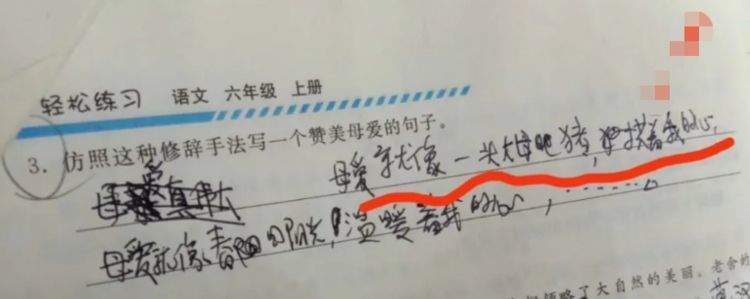 轻松练习 语文 六年级 上册
3. 仿照这种修辞手法写一个赞美母爱的句子。
母爱就像一头大母吧猪,把拱着我的心,
母爱就像春日的阳光,温暖着我的心,……。
略了大自然的美丽。老舍的